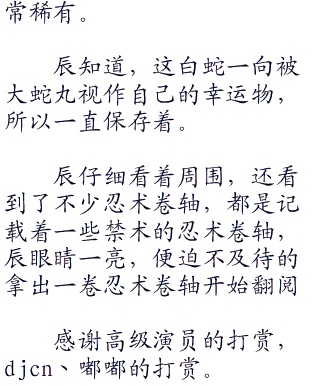 常稀有。
辰知道，这白蛇一向被
大蛇丸视作自己的幸运物，
所以一直保存着。
辰仔细看着周围，还看
到了不少忍术卷轴，都是记
载着一些禁术的忍术卷轴，
辰眼睛一亮，便迫不及待的
拿出一卷忍术卷轴开始翻阅
感谢高级演员的打赏，
djcn、嘟嘟的打赏。